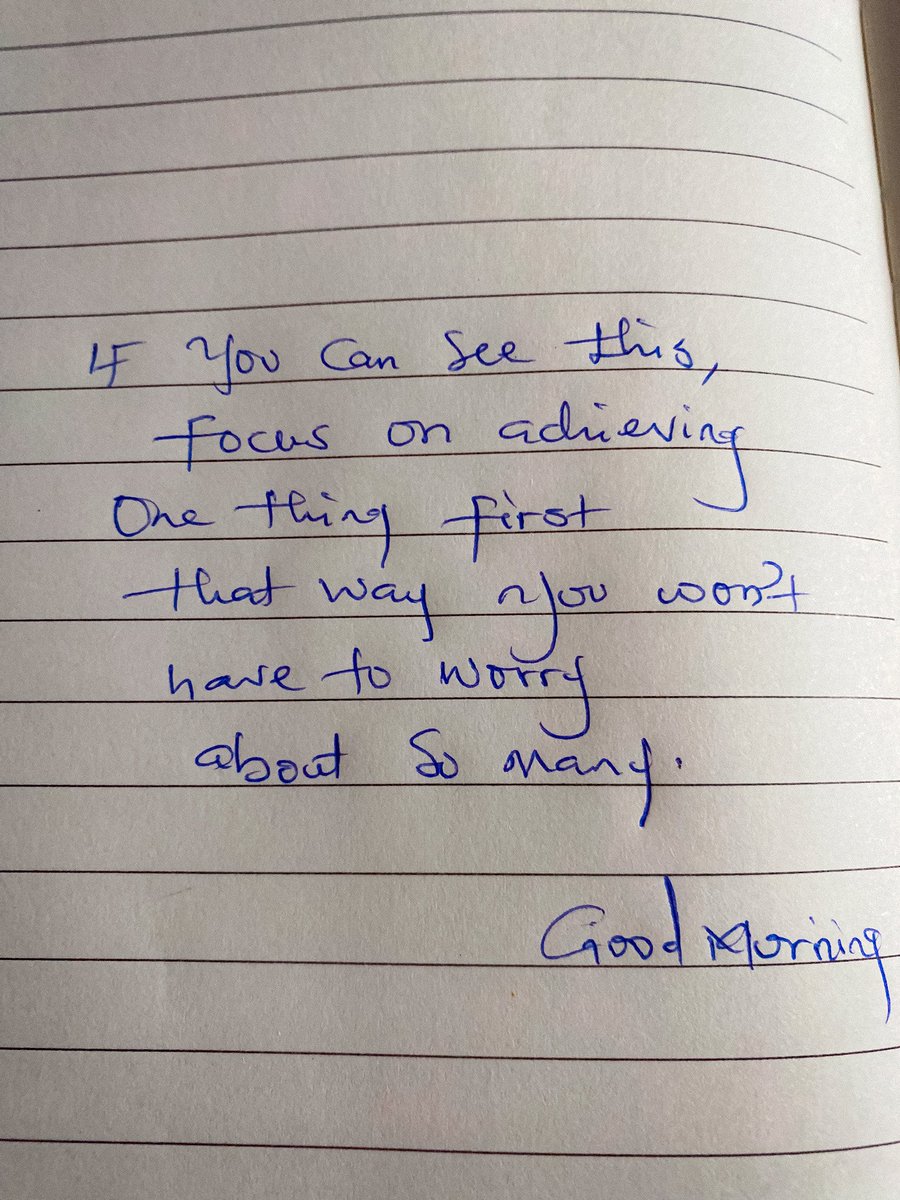 If you can see this,
focus on achieving
One thing first
that way you won't
have to worry
about so many.
Good Morning